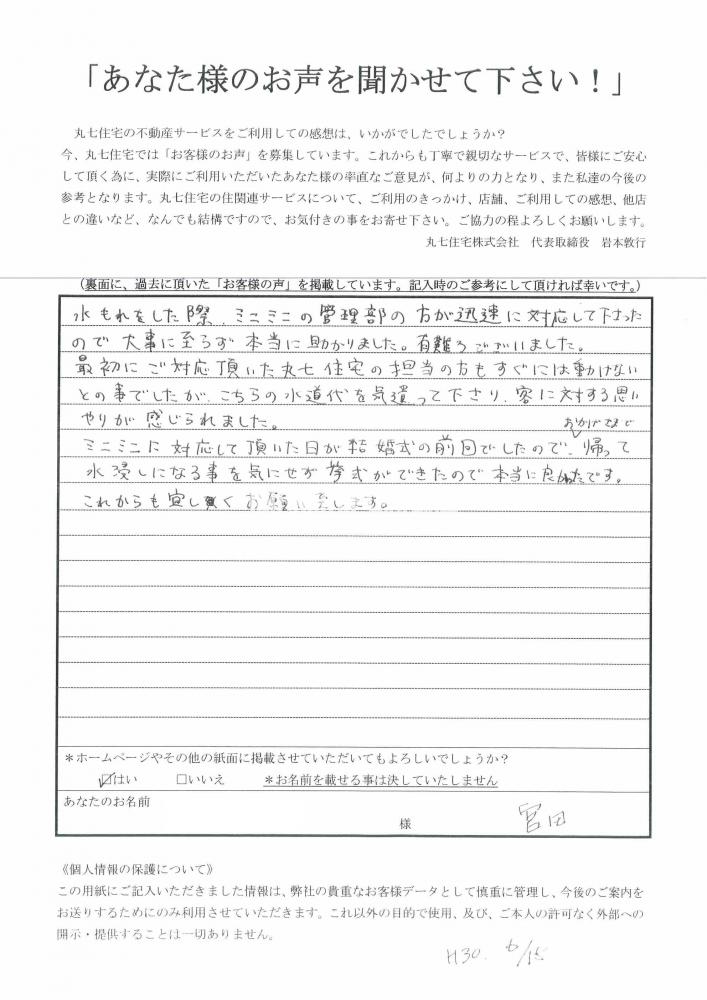 「あなた様のお声を聞かせて下さい！」
丸七住宅の不動産サービスをご利用しての感想は、いかがでしたでしょうか？
今、丸七住宅では「お客様のお声」を募集しています。これからも丁寧で親切なサービスで、皆様にご安心
して頂く為に、実際にご利用いただいたあなた様の率直なご意見が、何よりの力となり、また私達の今後の
参考となります。丸七住宅の住関連サービスについて、ご利用のきっかけ、店舗、ご利用しての感想、他店
との違いなど、なんでも結構ですので、お気付きの事をお寄せ下さい。ご協力の程よろしくお願いします。
丸七住宅株式会社　代表取締役　岩本敦行
（裏面に、過去に頂いた「お客様の声」を掲載しています。記入時のご参考にして頂ければ幸いです。）
水もれをした際、ミニミニの管理部の方が迅速に対応して下さった
ので大事に至らず本当に助かりました。有難うございました。
最初にご対応頂いた丸七住宅の担当の方もすぐには動けない
との事でしたが、こちらの水道代を気遣って下さり、客に対する思い
やりが感じられました。
おかげさまで
ミニミニに対応して頂いた日が結婚式の前日でしたので、帰って
水浸しになる事を気にせず挙式ができたので本当に良かったです。
これからも宜しく お願い致します。
＊ホームページやその他の紙面に掲載させていただいてもよろしいでしょうか？
☑はい　□いいえ　＊お名前を載せる事は決していたしません
あなたのお名前
様　宮田
《個人情報の保護について》
この用紙にご記入いただきました情報は、弊社の貴重なお客様データとして慎重に管理し、今後のご案内を
お送りするためにのみ利用させていただきます。これ以外の目的で使用、及び、ご本人の許可なく外部への
開示・提供することは一切ありません。
H30. 6/15